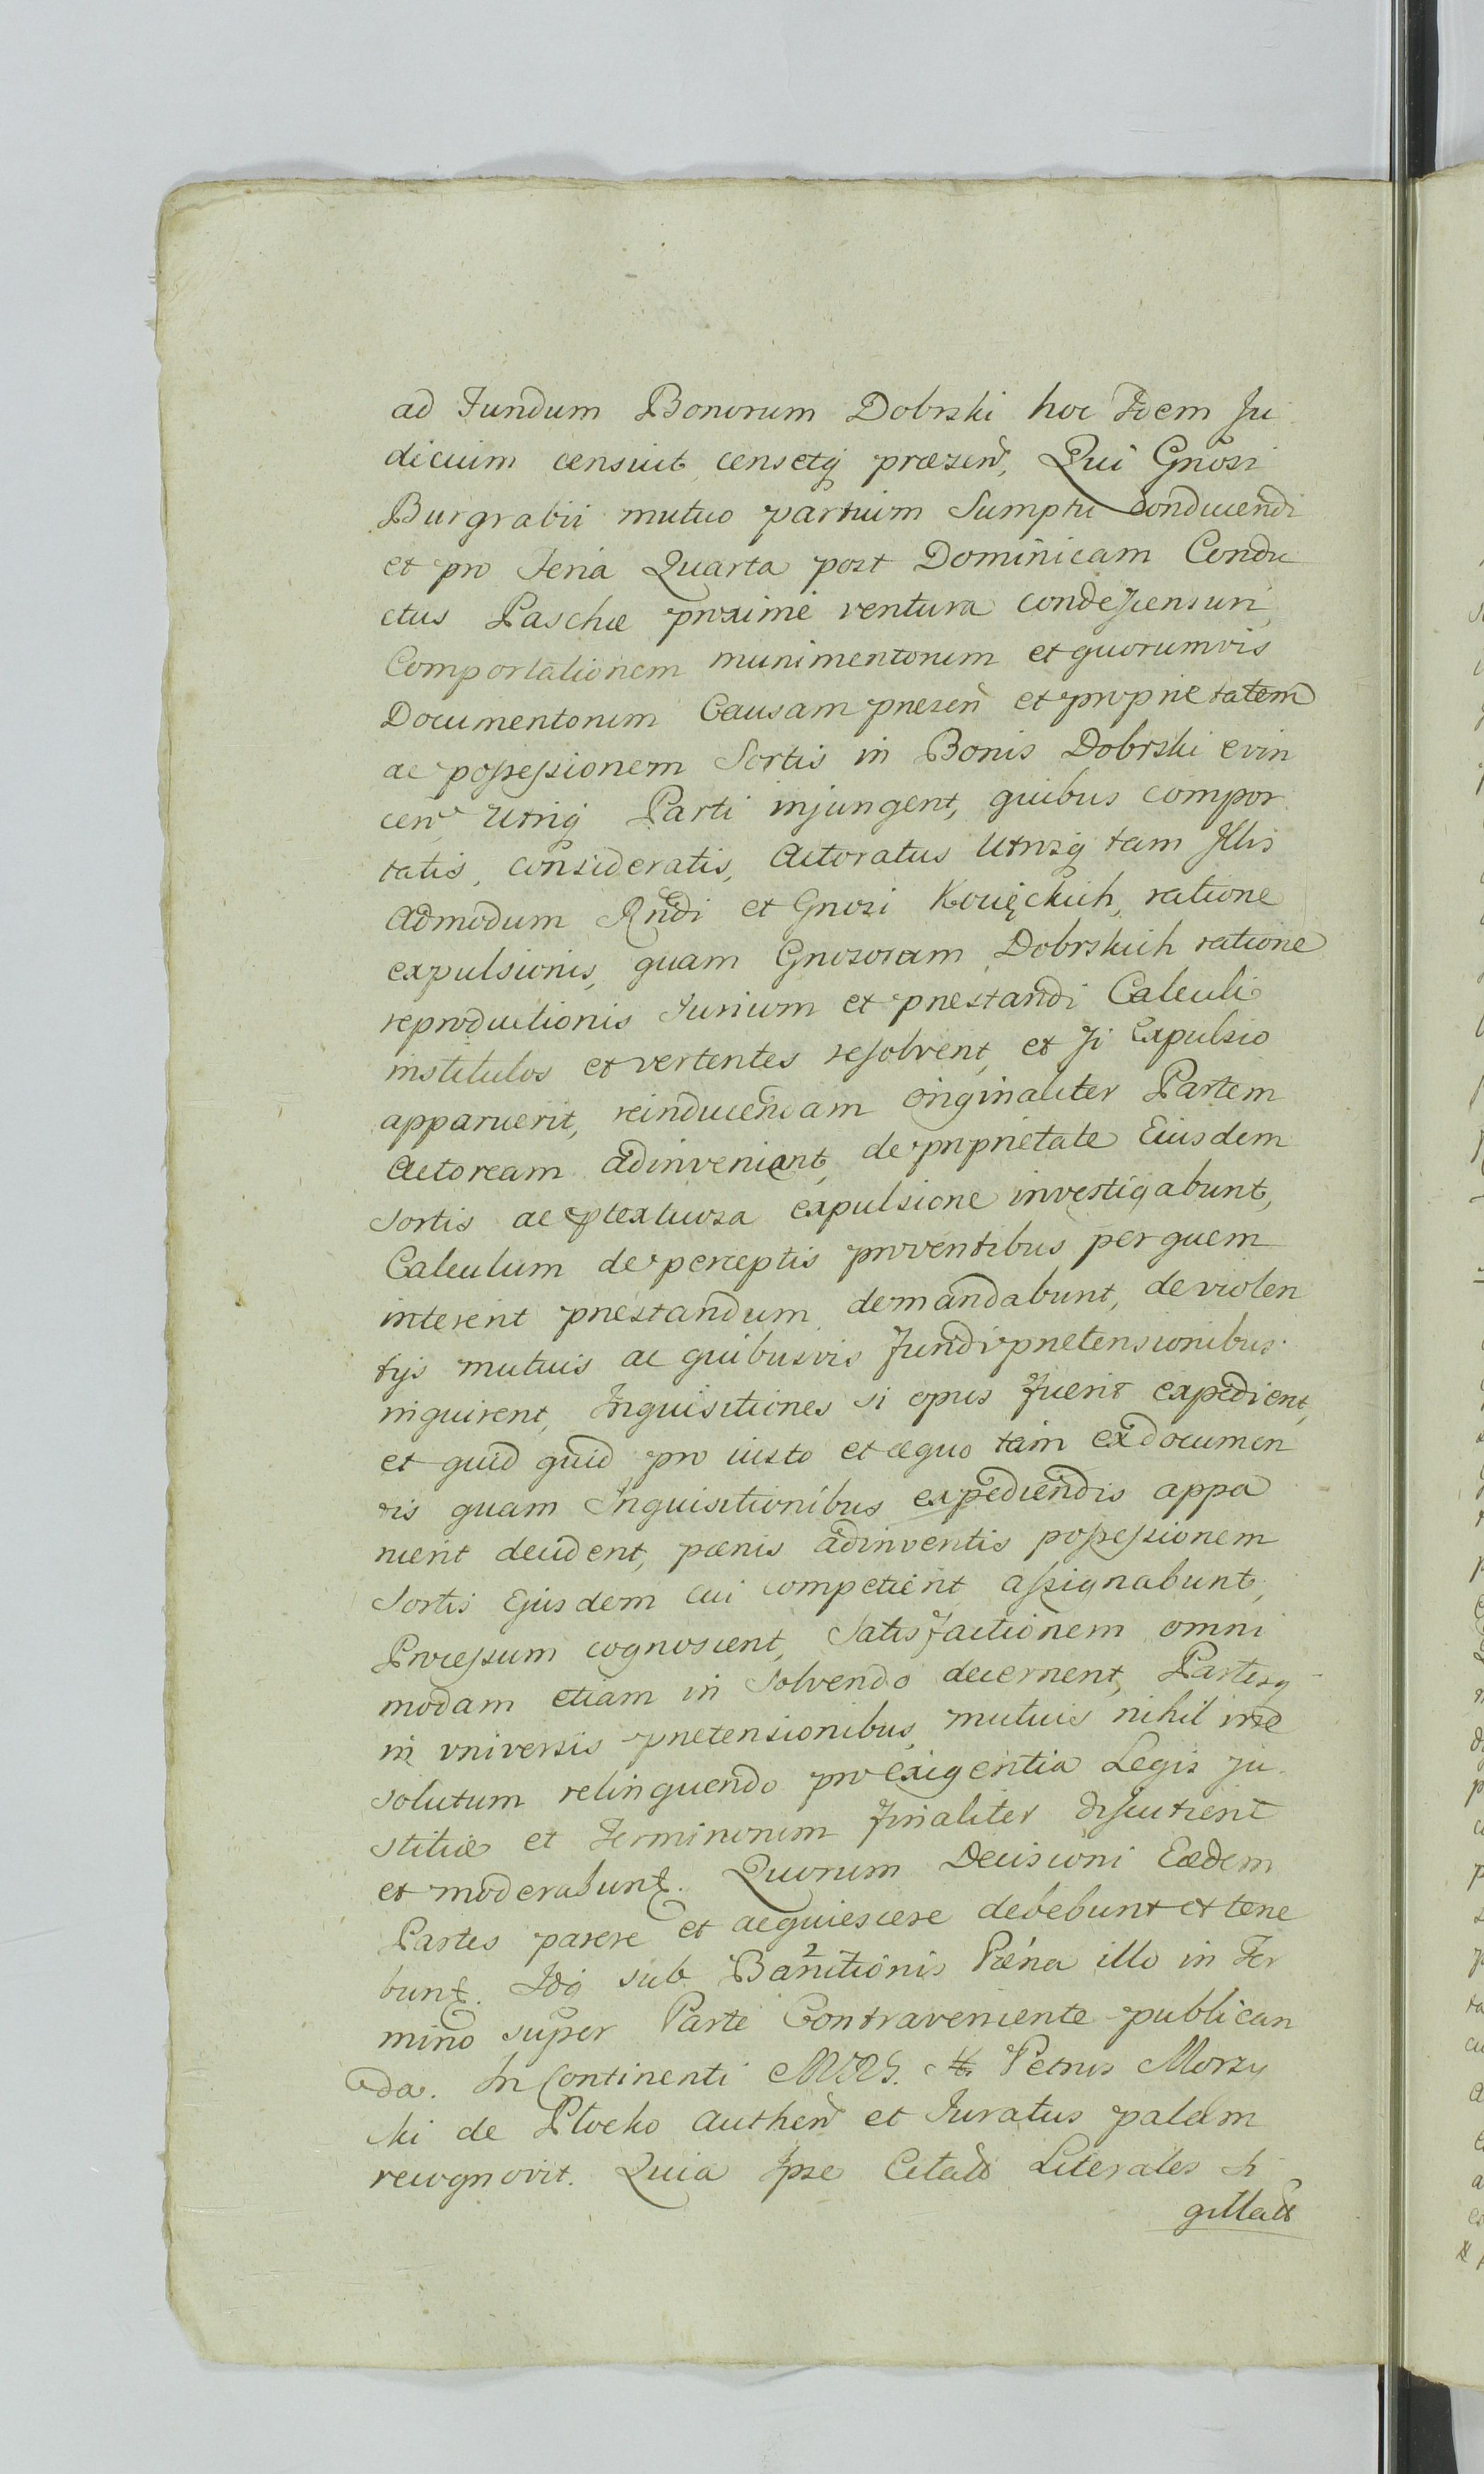 ad Fundum Bonorum Dobrski hoc Idem Ju
dicium censuit, censetq̨ præsen̄, Qui Gnosi
Burgrabii mutuo partium Sumptu conducendi
et pro Feria Quarta post Dominicam Condu
ctus Paschæ proximè ventura condescensuri,
Comportationem munimentorum et quorumvis
Documentorum Causam presen̄ et proprietatem
ac possessionem Sortis in Bonis Dobrski evin
cen̄ Utriq̨ Parti injungent, quibus compor
tatis, consideratis, Actoratus Utrosq̨ tam Illis
Admodum Rndi et Gnosi Kowięckich, ratione
expulsionis, quam Gnosorum Dobrskich ratione
reproductionis Jurium et prestandi Calculi
institutos et vertentes resolvent, et si Expulsio
apparuerit, reinducendam originaliter Partem
Actoream adinvenient, de proprietate Eiusdem
Sortis ac expulsione investigabunt,
Calculum de perceptis proventibus per quem
interent prestandum demandabunt, de violen
tijs mutuis ac quibusvis Fundi pretensionibus
inquirent, Inquisitiones si opus fuerit expedient,
et quid quid pro iusto et æquo tam ex documen
tis quam Inquisitionibus expediendis appa
ruerit decident, pœnis adinventis possessionem
Sortis Ejusdem cui competierit assignabunt,
Processum cognoscent, Satisfactionem omni
modam etiam in Solvendo decernent, Partesq̨
in universis pretensionibus mutuis nihil inde
solutum relinquendo pro exigentia Legis ju
stitiæ et Terminorum finaliter discutient
et moderabunt. Quorum Decisioni Eædem
Partes parere et acquiescere debebunt et tene
bunt. Idq̨ sub Bannitionis Pœna illo in Ter
mino super Parte Contraveniente publican
da. In Continenti Petrus Morzy
cki de Plocko Authen̄ et Juratus palam
recognovit. Quia Ipse Citatt Literales Si
gillatt